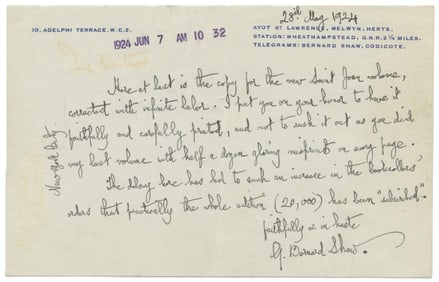 10, ADELPHI TERRACE. W.C.2.
28th May 1924
AYOT ST LAWRENCE, WELWYN, HERTS.
STATION: WHEATHAMPSTEAD, G.N.R. 2¼ MILES.
TELEGRAMS: BERNARD SHAW, CODICOTE.
1924 JUN 7 AM 10 32
Here at last is the copy for the new Saint Joan volume,
corrected with infinite labor. I put you on your honor to have it
faithfully and carefully printed, and not to rush it out as you did
my last volume with half a dozen glaring misprints on every page.
The delay here has led to such an increase in the booksellers'
orders that practically the whole edition (20,000) has been "subscribed".
faithfully & in haste
G. Bernard Shaw.
New York City